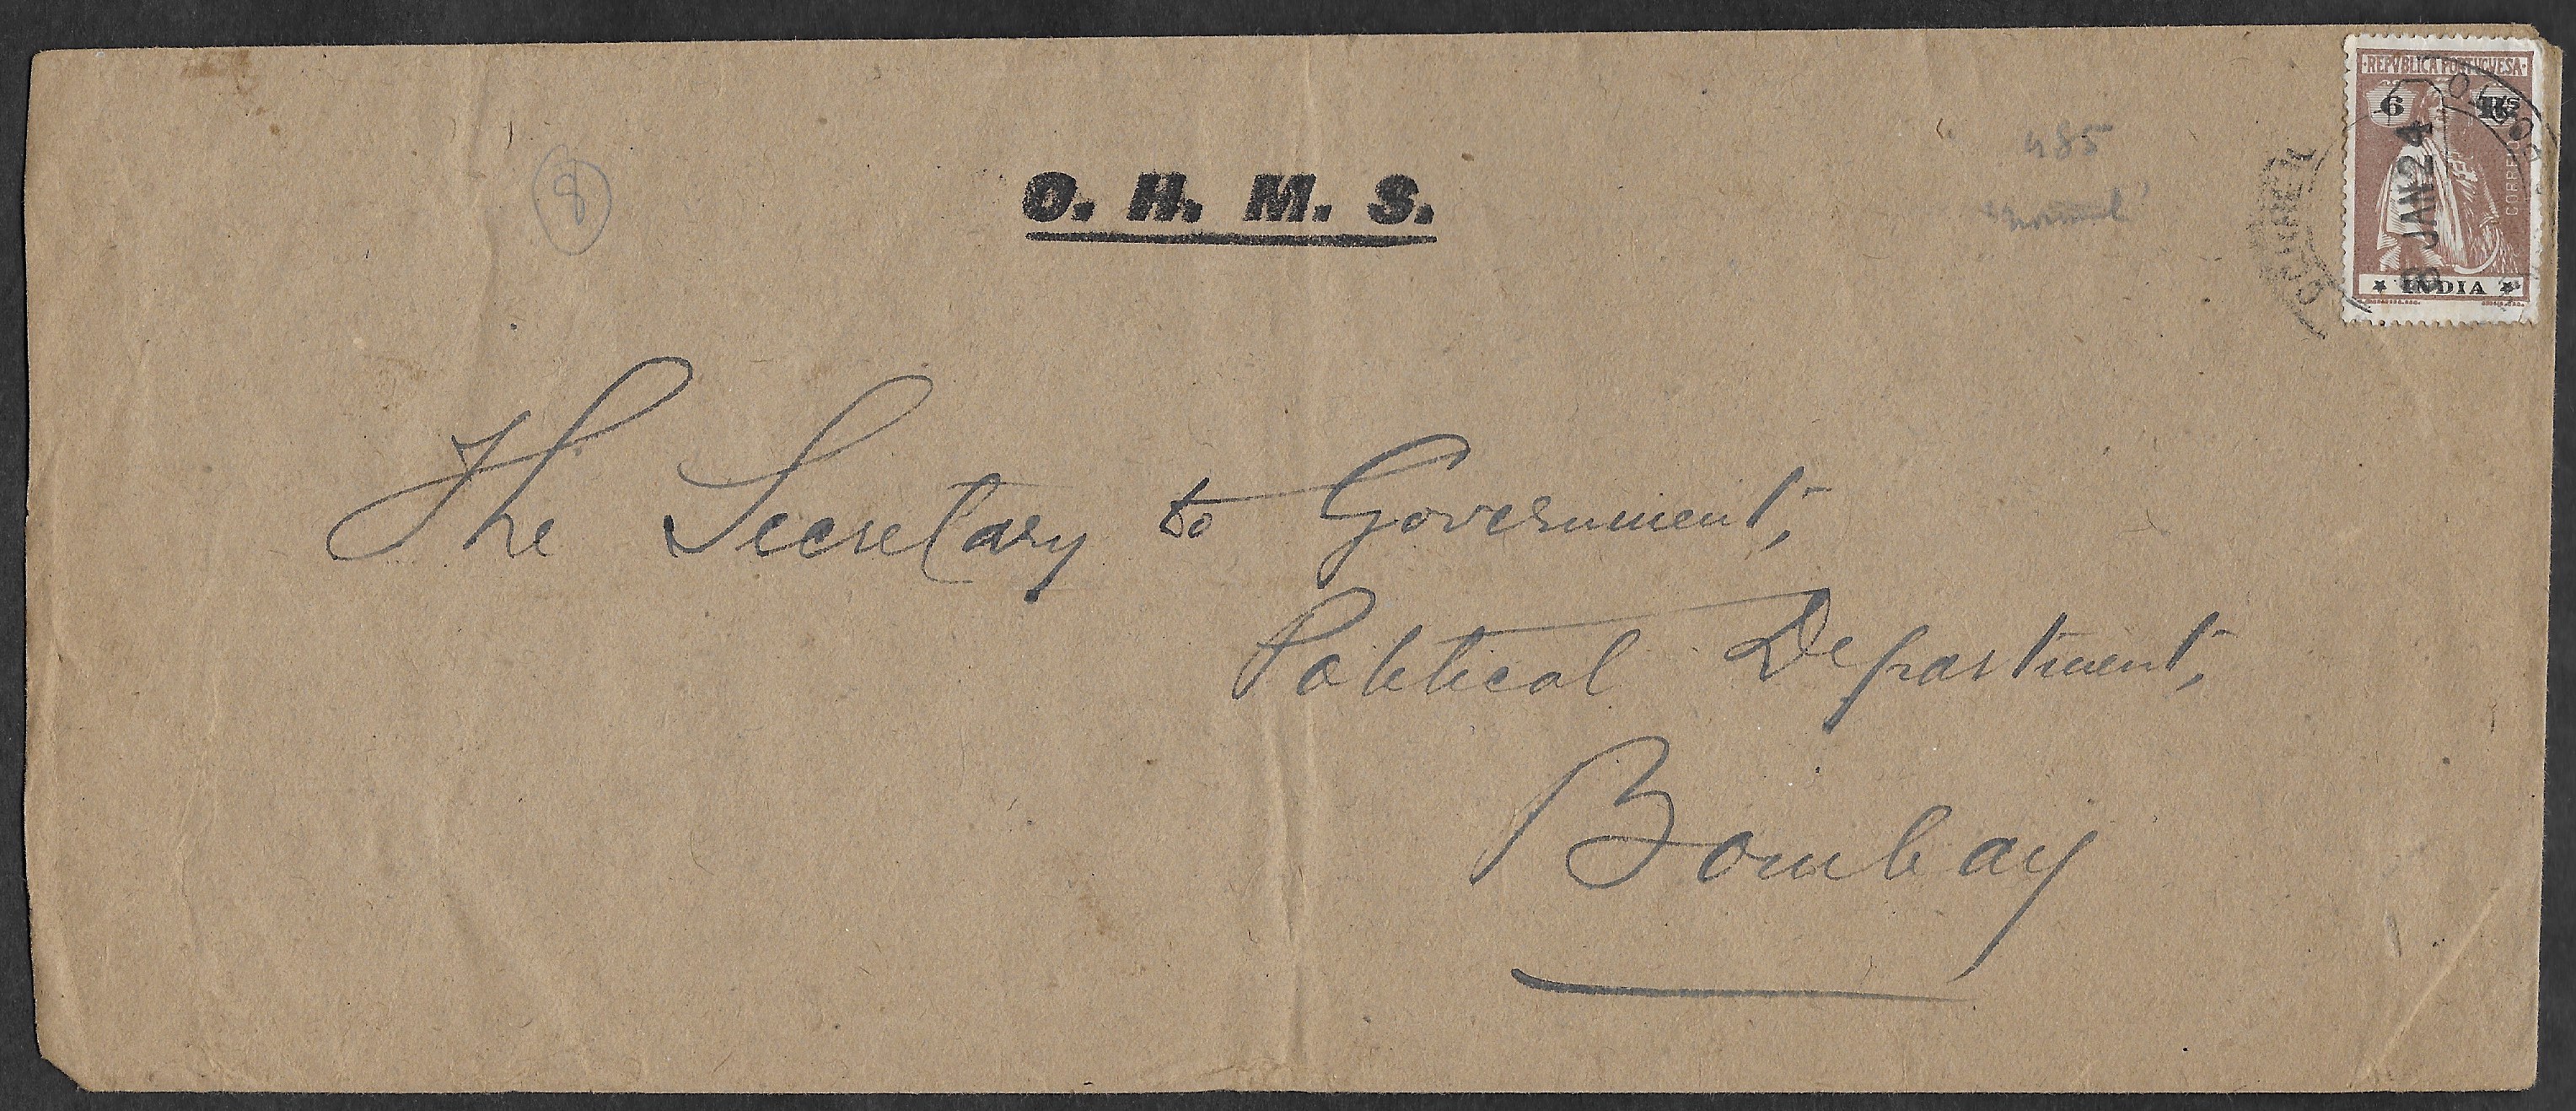 O. H. M. S.
8
485
REPVBLICA PORTUGVESA
6 Rs
CORREIO
8 JAN 24
INDIA
The Secretary to Government,
Political Department,
Bombay